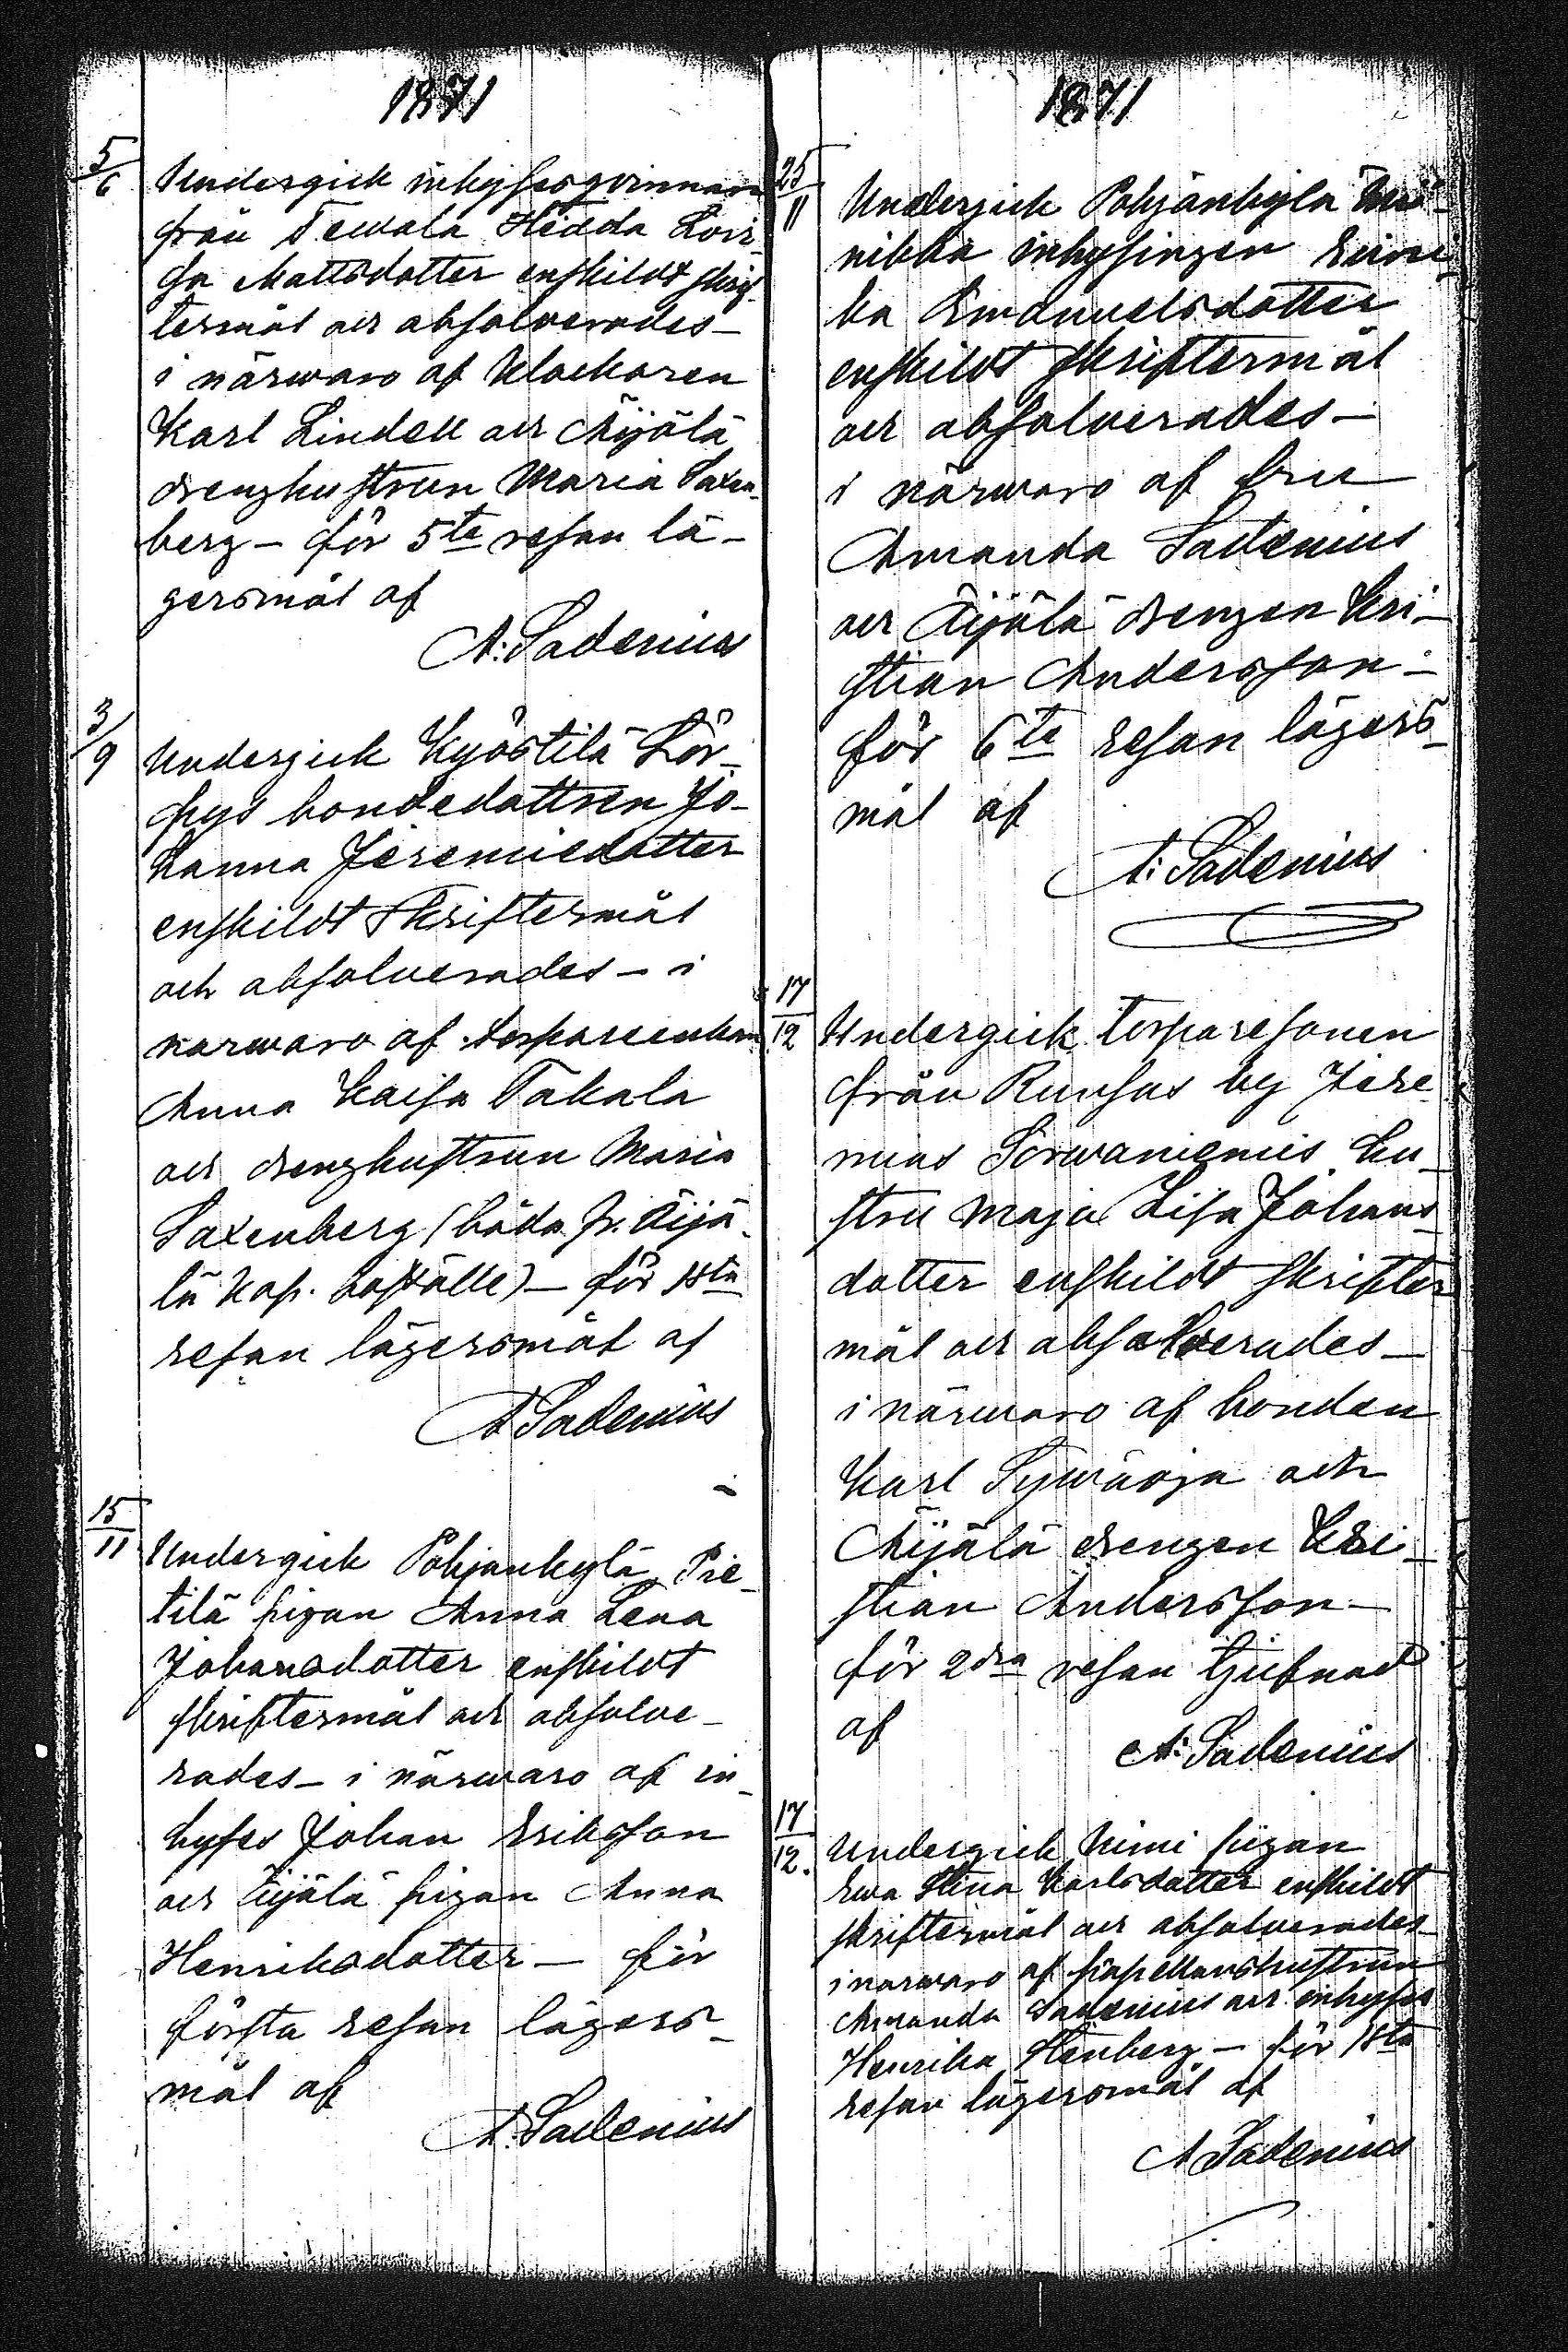 1871
5/6 Undergick inhysesqvinnan
från Tewala Hedda Lovi-
sa Mattsdotter enskildt skrif-
termål och absolverades –
i närwaro af klockaren
Karl Lindell och Äijälä
drenghustrun Maria Saxen-
berg – för 5te resan lä-
gersmål af
A: Sadenius
3/9 Undergick Kyöstilä Lör-
pys bondedottren Jo-
hanna Jeremiedotter
enskildt Skriftermål
och absolverades – i
narwaro af torpareenkan
Anna Kaisa Takala
och drenghustrun Maria
Saxenberg (båda fr. Äijä-
lä Kap. boställe) – för 1sta
resan lägersmål af
A Sadenius
15/11 Undergick Pohjankylä Pie-
tilä pigan Anna Lena
Johansdotter enskildt
skriftermål och absolve-
rades – i närwaro af in-
hyses Johan Eriksson
och Äijälä pigan Anna
Henriksdotter – för
första resan lägers-
mål af
A. Sadenius
1871
25/11 Undergick Pohjankylä
nikka inhysingen
Emanuelsdotter
enskildt skriftermål
och absolverades –
i närwaro af fru
Amanda Sadenius
och Äijälä drengen Kri-
stian Andersson –
för 6te resan lägers-
mål af
A: Sadenius
17/12 Undergick torparesonen
från Runsas by Jere
mias Sorwaniemis hu-
stru Maja Lisa Johans-
dotter enskildt skrifter
mål och absolverades –
i närwaro af bonden
Karl Sywäoja och
Äijälä drengen Kri-
stian Andersson –
för 2dra resan tjufnad
af
A: Sadenius
17/12. Undergick Nimi pigan
Ewa Stina Karlsdotter enskildt
skriftermål och absolverades
i narwaro af kapellanshustrun
Amanda Sadenius och inhyses
Henrika Stenberg – för 1sta
resan lägersmål af
A Sadenius